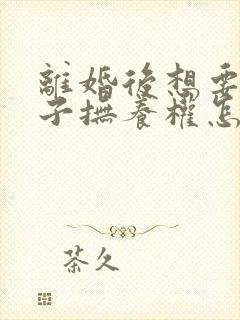 離婚後想要
子撫養權怎
茶久